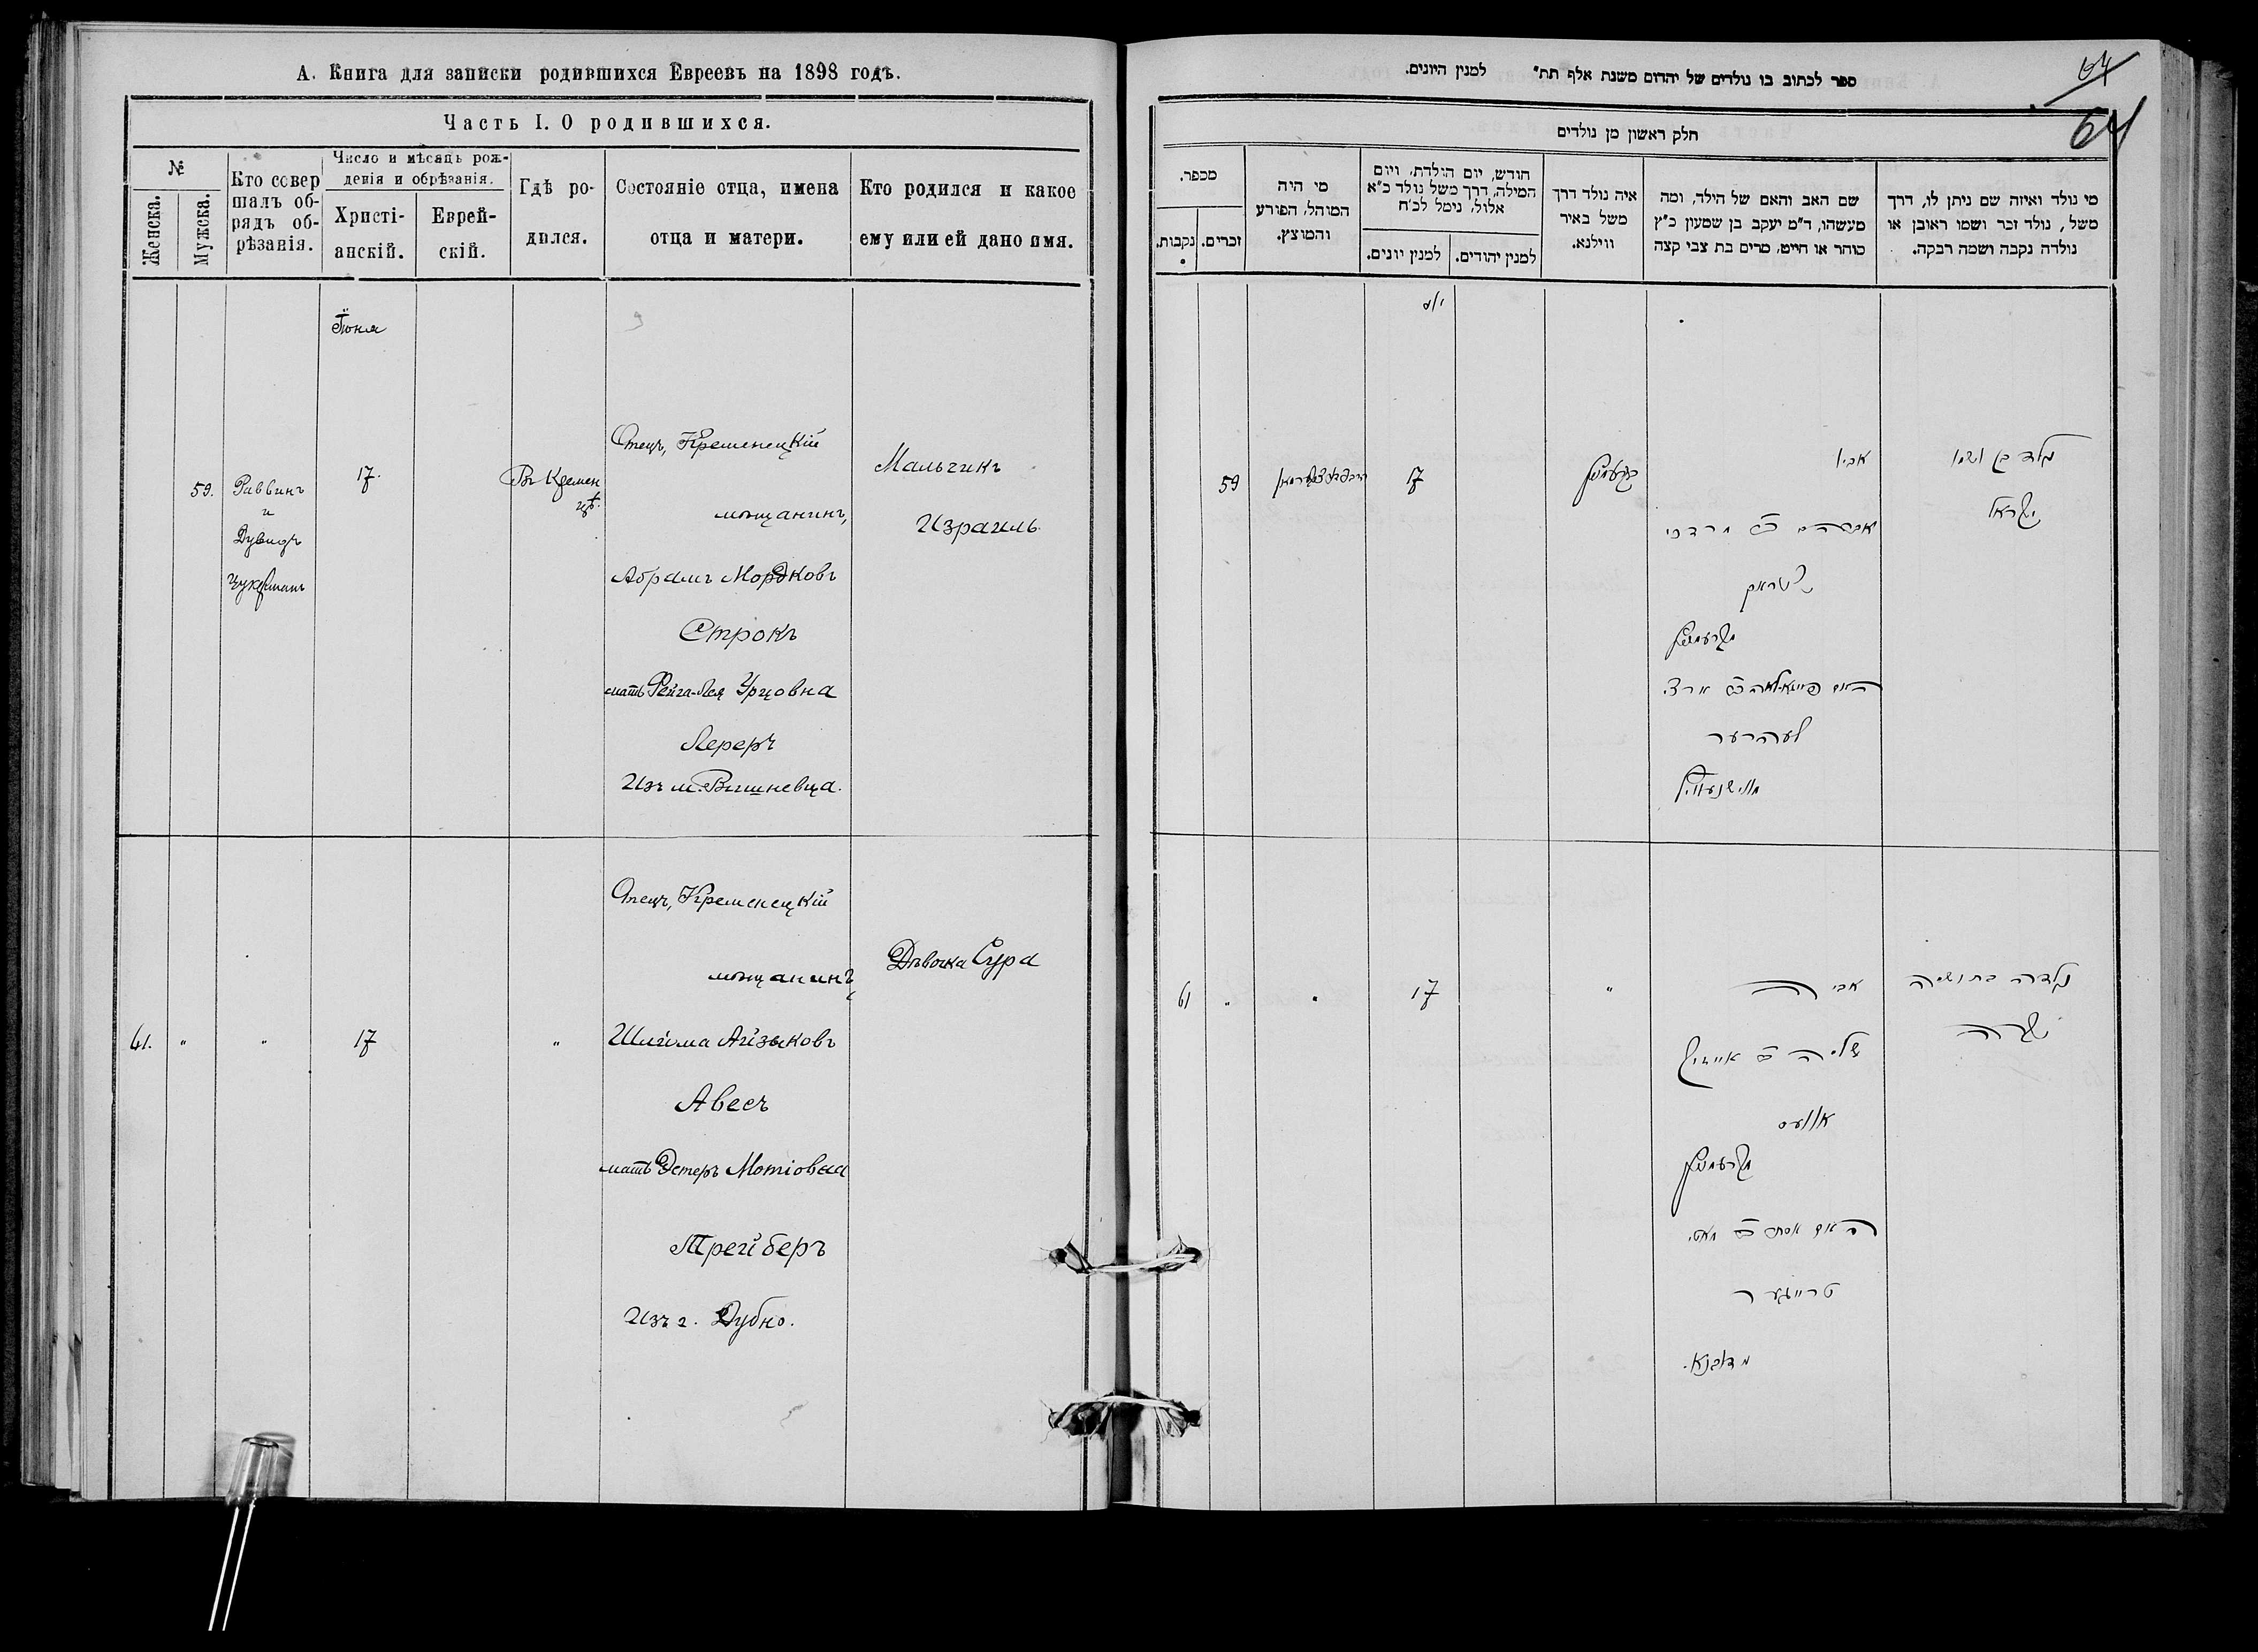 А. Книга для записки родившихся Евреевъ на 1898 годъ.
Часть I. О родившихся.
№
Женска.
Мужска.
Кто совер
шалъ об-
рядъ об-
рѣзанія.
Число и мѣсяцъ рож-
денія и обрѣзанія.
Христі-
анскій.
Еврей-
скій.
Гдѣ ро-
дился.
Состояніе отца, имена
отца и матери.
Кто родился и какое
ему или ей дано имя.
Іюня
59.
Раввинъ
и
Дувидъ
Цукерманъ
17.
Въ Кремен
цѣ.
Отецъ, Кременецкій
мѣщанинъ,
Абрамъ Мордковъ
Строкъ
мать Фейга-Лея Урцовна
Лереръ
Изъ м. Вишневца.
Мальчикъ
Израиль
61.
"
"
17
"
Отецъ, Кременецкій
мѣщанинъ,
Шлиома Айзыковъ
Авесъ
мать Эстеръ Мотіовна
Трейберъ
Изъ г. Дубно.
Дѣвочка Сура
ספר לכתוב בו נולדים של יהדום משנת אלף תת" למנין היונים.
64
64
חלק ראשון מן נולדים
מספר.
נקבות.
זכרים.
מי היה
המוהל, הפורע
והמוצץ.
חודש, יום הולדת, ויום
המילה, דרך משל נולד כ"א
אלול, נימל לכ"ח
למנין יונים.
למנין יהודים.
איה נולד דרך
משל באיר
ווילנא.
שם האב והאם של הילד, ומה
מעשהו, ד"מ יעקב בן שמעון כ"ץ
סוחר או חייט, מרים בת צבי קצה
מי נולד ואיזה שם ניתן לו, דרך
משל, נולד זכר ושמו ראובן או
נולדה נקבה ושמה רבקה.
59
17
אביו
אברהם ב"ר מרדכי
שטראק
מקרעמניץ
האם פייגא לאה ב"ר ארצי
לעהרער
מווישנעוויץ
נולד בן ושמו
ישראל
61
"
"
17
"
אביה
שלמה ב"ר אייזיק
אוועס
מקרעמניץ
האם אסתר ב"ר מאטי
טרייבער
מדובנא.
נולדה בת ושמה
שרה